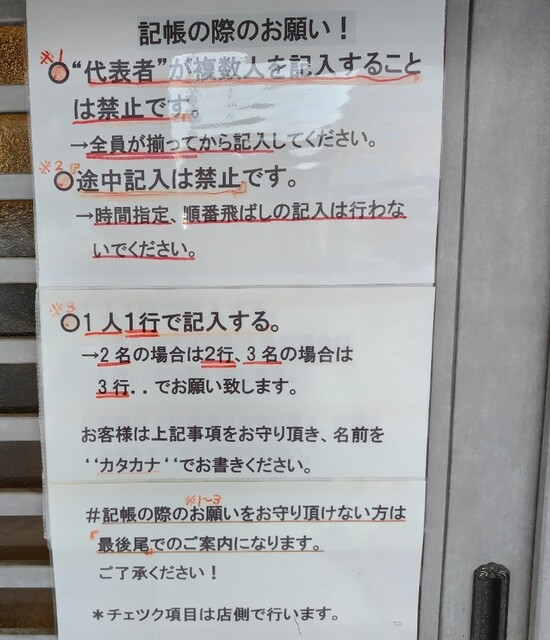 記帳の際のお願い！
※1
○“代表者”が複数人を記入すること
は禁止です。
→全員が揃ってから記入してください。
※2
○『途中記入は禁止』です。
→時間指定、順番飛ばしの記入は行わな
いでください。
※3
○1人1行で記入する。
→2名の場合は2行、3名の場合は
3行．．でお願い致します。
お客様は上記事項をお守り頂き、名前を
‘‘カタカナ‘‘でお書きください。
※1~3
＃記帳の際のお願いをお守り頂けない方は
「最後尾でのご案内になります。
ご了承ください！
＊チェツク項目は店側で行います。